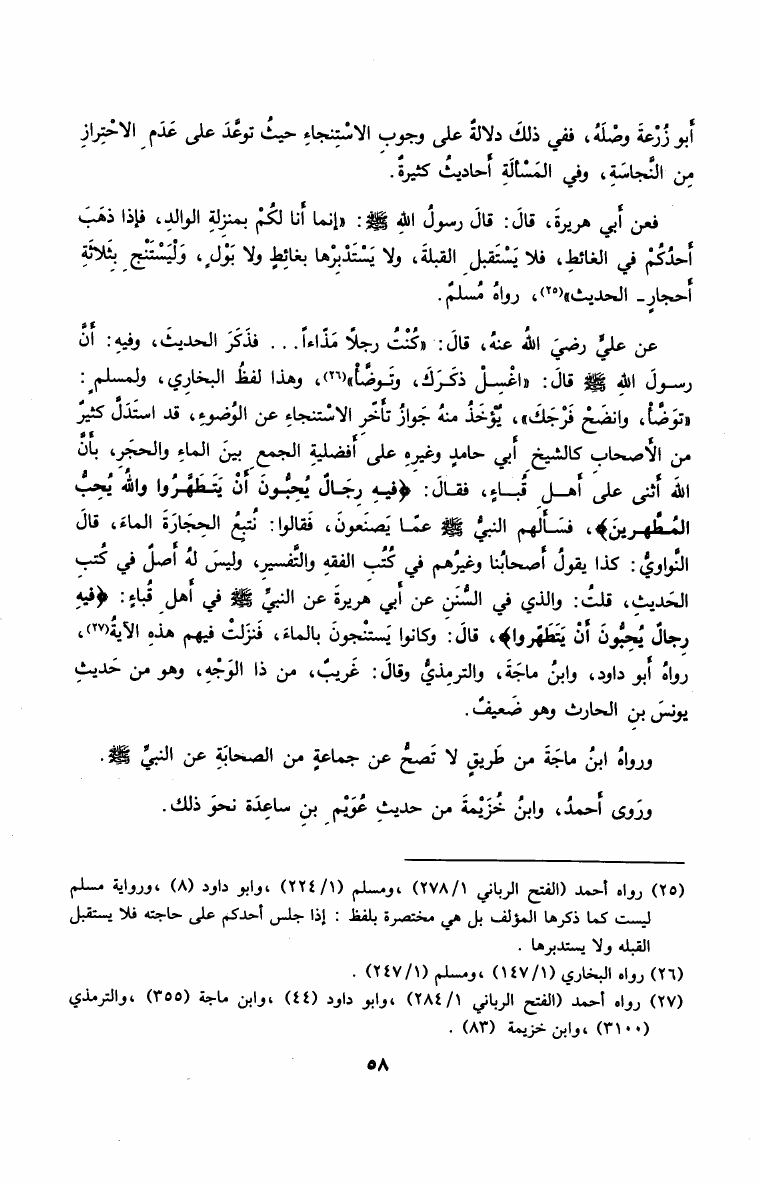 أَبو زُرْعةَ وصْلَهُ، ففي ذلكَ دلالةٌ على وجوبِ الاسْتِنجاءِ حيثُ توعَّدَ على عَدَمِ الاحْتِرازِ
مِن النَّجاسَةِ، وفي المَسْألَةِ أَحاديثُ كثيرةٌ.
فعن أَبي هريرةَ، قالَ: قالَ رسولُ اللهِ ﷺ: «إنما أَنا لكُمْ بمنزلةِ الوالدِ، فإذا ذهَبَ
أَحدُكُمْ في الغائطِ، فلا يَسْتَقبلِ القبلةَ، ولا يَسْتَدْبِرْها بغائِطٍ ولا بَوْلٍ، وَلْيَسْتَنْجِ بثَلاثَةِ
أَحجارٍ - الحديث»(٢٥)، رواهُ مُسلمٌ.
عن عليٍّ رضيَ اللهُ عنهُ، قالَ: «كُنْتُ رجلاً مَذّاءاً... فذَكَرَ الحديثَ، وفيهِ: أَنَّ
رسولَ اللهِ ﷺ قالَ: «اغْسِلْ ذكَرَكَ، وتَوضَّأْ»(٢٦)، وهذا لفظُ البخاري، ولمسلمٍ:
«توَضَّأْ، وانضَحْ فَرْجَكَ»، يُؤخَذُ منهُ جَوازُ تأَخّرِ الاسْتنجاءِ عن الوُضوءِ، قد استَدَلَّ كثيرٌ
من الأَصحابِ كالشيخِ أَبي حامدٍ وغيرِهِ على أَفضليةِ الجمعِ بينَ الماءِ والحجَرِ، بأَنَّ
اللهَ أَثنى على أَهلِ قُباءٍ، فقالَ: ﴿فيهِ رِجَالٌ يُحِبُّونَ أَنْ يَتَطَهَّرُوا واللهُ يُحبُّ
المُطَّهرينَ﴾، فسَأَلهم النبيُّ ﷺ عمّا يَصنَعونَ، فَقالوا: نُتبِعُ الحِجَارَةَ الماءَ، قالَ
النَّواويُّ: كذا يقولُ أَصحابُنا وغيرُهم في كُتُبِ الفقهِ والتَّفسيرِ، وليسَ لهُ أَصلٌ في كُتبِ
الحَديثِ، قلتُ: والذي في السُّنَنِ عن أَبي هريرةَ عن النبيِّ ﷺ في أَهلِ قُباءٍ: ﴿فيهِ
رِجالٌ يُحبُّونَ أَنْ يَتَطَهّروا﴾، قالَ: وكانوا يَستنْجونَ بالماءَ، فَنزلَتْ فيهم هذهِ الآيةُ(٢٧)،
رواهُ أَبو داود، وابنُ ماجَةَ، والترمِذيُّ وقالَ: غَريبٌ، من ذا الوَجْهِ، وهو من حَديثِ
يونسَ بنِ الحارث وهو ضَعيفٌ.
ورواهُ ابنُ ماجَةَ من طَريقٍ لا تَصحُّ عن جماعةٍ من الصحابَةِ عن النبيِّ ﷺ.
ورَوى أَحمدُ، وابنُ خُزَيْمةَ من حديثِ عُوَيْمِ بنِ ساعِدَة نحوَ ذلك.
(٢٥) رواه أحمد (الفتح الرباني ٢٧٨/١) ،ومسلم (٢٢٤/١) ،وابو داود (٨) ،ورواية مسلم
ليست كما ذكرها المؤلف بل هي مختصرة بلفظ : إذا جلس أحدكم على حاجته فلا يستقبل
القبله ولا يستدبرها .
(٢٦) رواه البخاري (١٤٧/١) ،ومسلم (٢٤٧/١) .
(٢٧) رواه أحمد (الفتح الرباني ٢٨٤/١) ،وابو داود (٤٤) ،وابن ماجة (٣٥٥) ،والترمذي
(٣١٠٠) ،وابن خزيمة (٨٣) .
٥٨